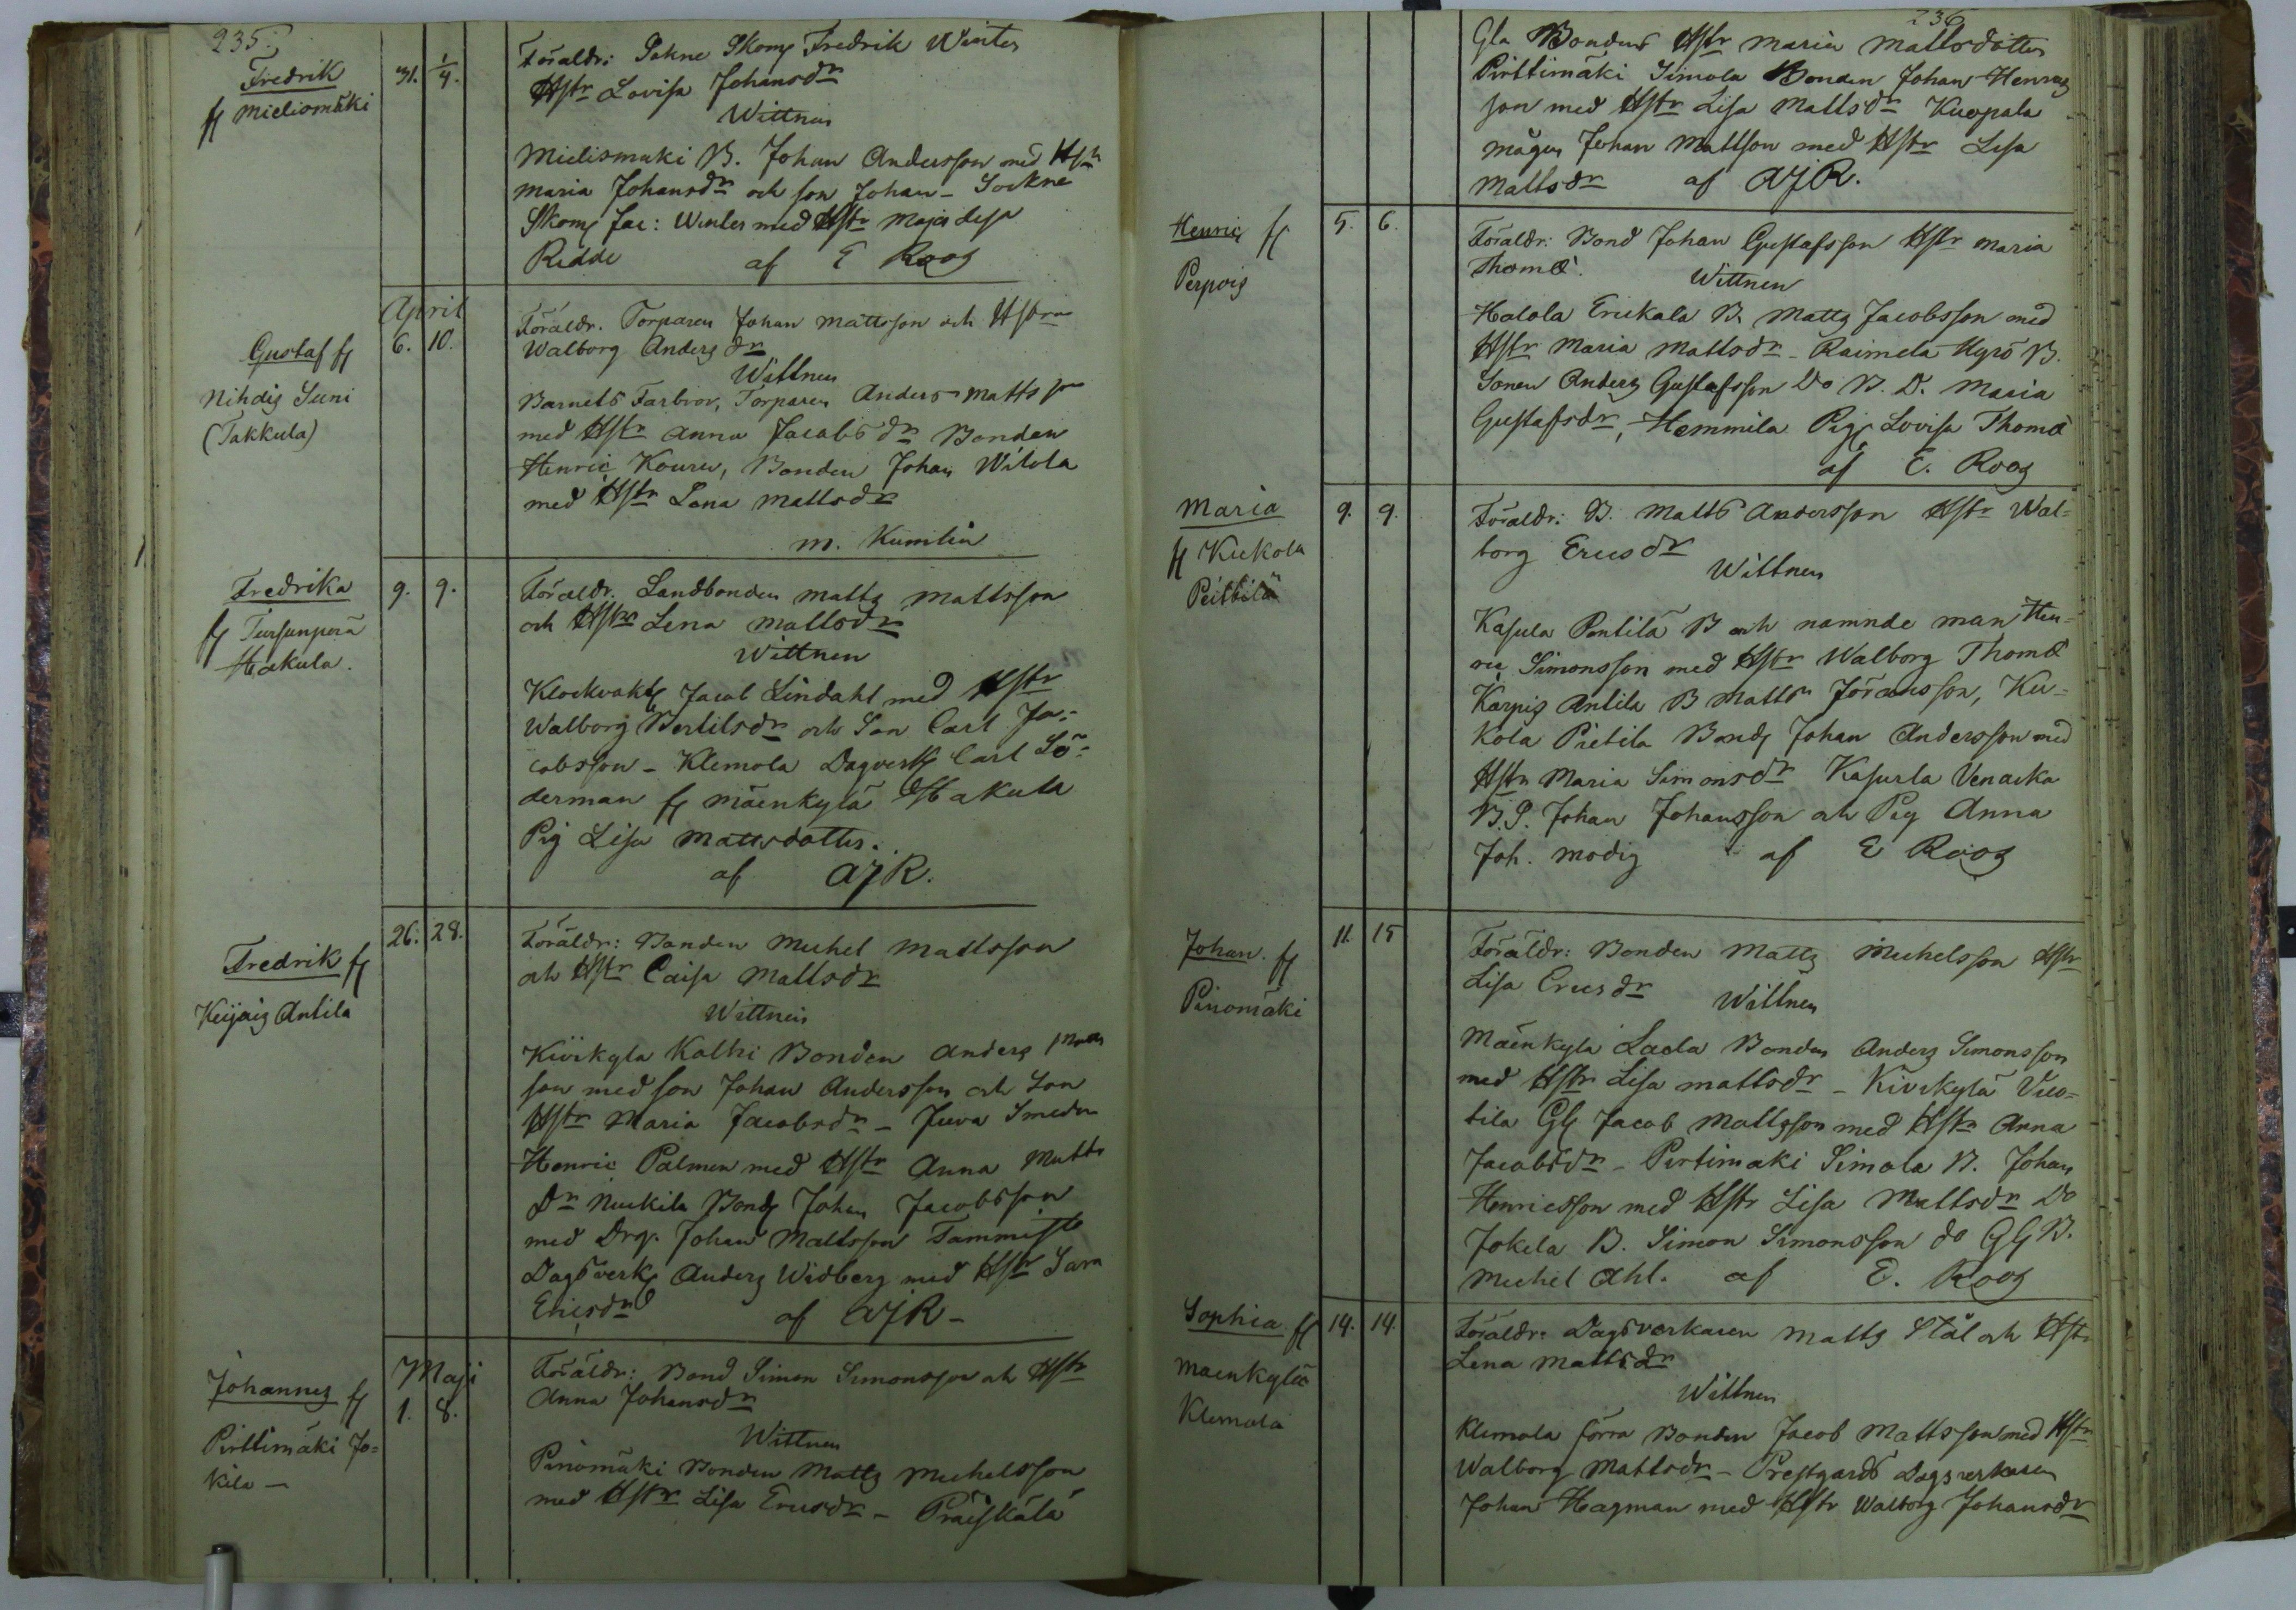 235.
Fredrik
ff Mieliomäki
31. 1/4.
Föräldr: Sokne Skom Fredrik Winter
Hstr Lovisa Johansdr
Wittnen
Mielismaki B. Johan Andersson med Hstr
Maria Johansdr och son Johan - Sockne
Skom Jac: Winter med Hstr Maja Lisa
Ridde af E Roos
April
Gustaf ff
Nihdis Suni
(Takkula)
6. 10.
Föräldr. Torparen Johan Mattsson och Hstrn
Walborg Anders dr
Wittnen
Barnets Farbror, Torparen Anders Mattsson
med Hstr Anna Jacobsdr Bonden
Henric Kouru, Bonden Johan Witola
med Hstr Lena Mattsdr
M. Kumlin
Fredrika
ff Tursunperä
Hakula.
9. 9.
Föräldr. Landbonden Matts Mattsson
och Hstru Lena Mattsdr
Wittnen
Klockvakt Jacob Lindahl med Hstr
Walborg Bertilsdr och Son Carl Ja-
cobsson - Klemola Dagverk Carl Sö-
derman ff Mäenkylä Hakula
Pig Lisa Mattsdotter.
af AJR.
Fredrik ff
Keijais Antila
26. 28.
Föräldr: Bonden Michel Mattsson
och Hstr Caisa Mattsdr
Wittnen
Kivikyla Kolhi Bonden Anders Matts
son med son Johan Andersson och Son
Hstr Maria Jacobsdr - Juva Smeden
Henric Palmen med Hstr Anna Matts
Dr Nuckila Bond Johan Jacobsson
med Drg. Johan Mattsson Tammisto
Dagsverk Anders Widberg med Hstr Sara
Ericsdr af AJR -
Maji
Johannes ff
Pirttimäki Jo=
kila -
1. 8.
Föräldr: Bond Simon Simonsson och Hstr
Anna Johansdr
Wittnen
Pinomäki Bonden Matts Michelsson
med Hstr Lisa Ericsdr - Präiskälä
236
Gla Bondens Hstr Maria Mattsdotter
Pirttimäki Simola Bonden Johan Henrics
son med Hstr Lisa Mattsdr Kuopala
mågen Johan Mattson med Hstr Lisa
Mattsdr af AJR.
Henric ff
Perpois
5. 6.
Föräldr: Bond Johan Gustafsson Hstr Maria
Thomæ.
Wittnen
Halola Erickala B. Matts Jacobsson med
Hstr Maria Mattsdr - Raimela Ugrö B.
Sonen Anders Gustafsson Do B. D. Maria
Gustafsdr, Hemmila Pig Lovisa Thomæ
af E. Roos
Maria
ff Kukola
Peittilä
9. 9.
Föräldr: B. Matts Andersson Hstr Wal=
borg Ericsdr
Wittnen
Kasula Pentilä B och namnde man Hen=
ric Simonsson med Hstr Walborg Thomæ
Karpis Antila B Matts Jöransson, Ku=
kola Pietila Bond Johan Andersson med
Hstr Maria Simonsdr Kasurla Venacka
B. S. Johan Johansson och Pig Anna
Joh. Modig af E Roos
Johan. ff
Pinomäki
11. 15
Föräldr: Bonden Matts Michelsson Hstr
Lisa Ericsdr
Wittnen
Mäenkyla Laola Bonden Anders Simonsson
med Hstr Lisa Mattsdr - Kivikylä Vuo=
tila Gl Jacob Mattsson med Hstr Anna
Jacobsdr - Pirtimaki Simola B. Johan
Henricsson med Hstr Lisa Mattsdr Do
Jokela B. Simon Simonsson do Gl B.
Michel Ahl. af E. Roos
Sophia ff
Maenkylä
Klemola
14. 14.
Föräldr: Dagsverkaren Matts Stål och Hstr
Lena Mattsdr
Wittnen
Klemola förra Bonden Jacob Mattsson med Hstr
Walborg Mattsdr - Prestgards Dagsverkaren
Johan Hagman med Hstr Walborg Johansdr